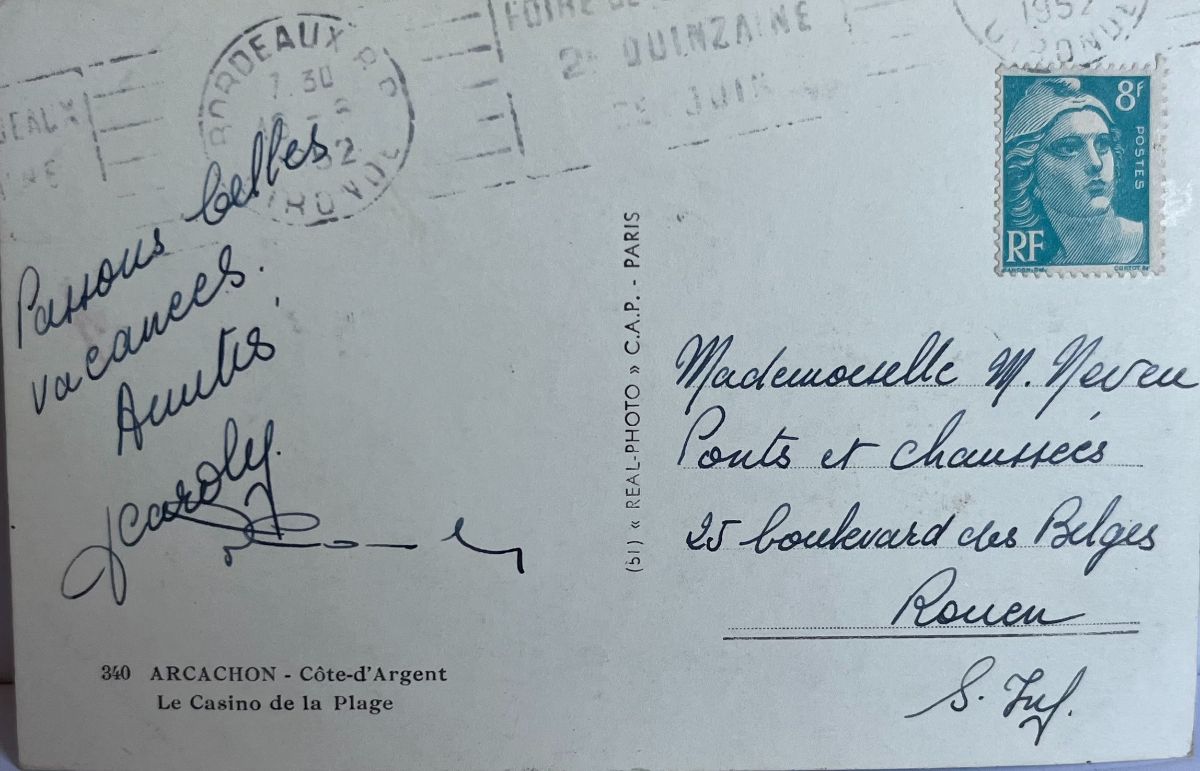 BORDEAUX R.P.
7.30
52
GIRONDE
FOIRE DE
2e QUINZAINE
JUIN
1952
GIRONDE
8F
POSTES
RF
GANDON. DEL.
CORTOT. SC.
Passons belles
vacances.
Amitiés
(51) « REAL-PHOTO » C.A.P. - PARIS
Mademoiselle M. Neveu
Ponts et chaussées
25 boulevard des Belges
Rouen
S. Inf.
340 ARCACHON - Côte-d'Argent
Le Casino de la Plage